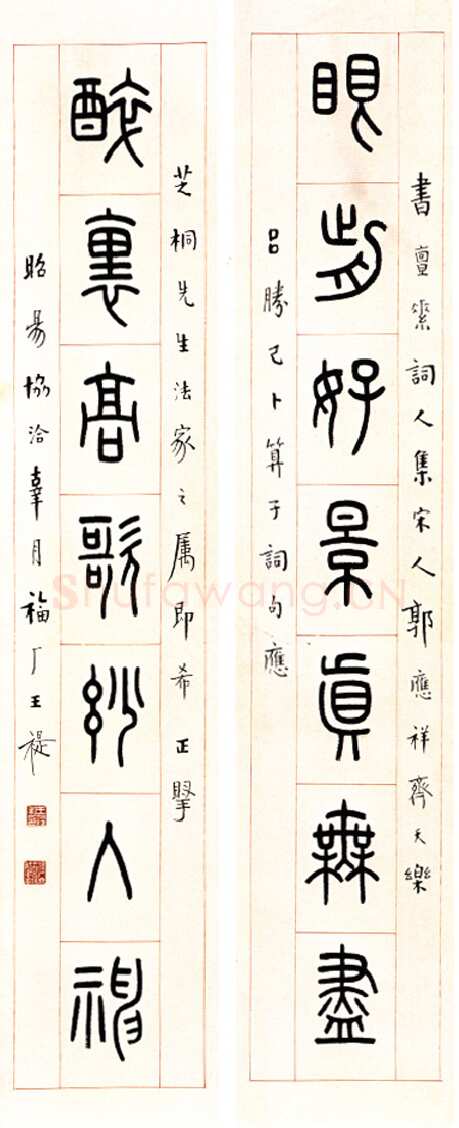 書亶素詞人集宋人郭應祥齊天樂
眼前好景眞無盡
呂勝己卜算子詞句應
芝桐先生法家之属即希正擥
醉裏高歌玅入神
昭昜協洽辜月福厂王禔
Shufawang.CN